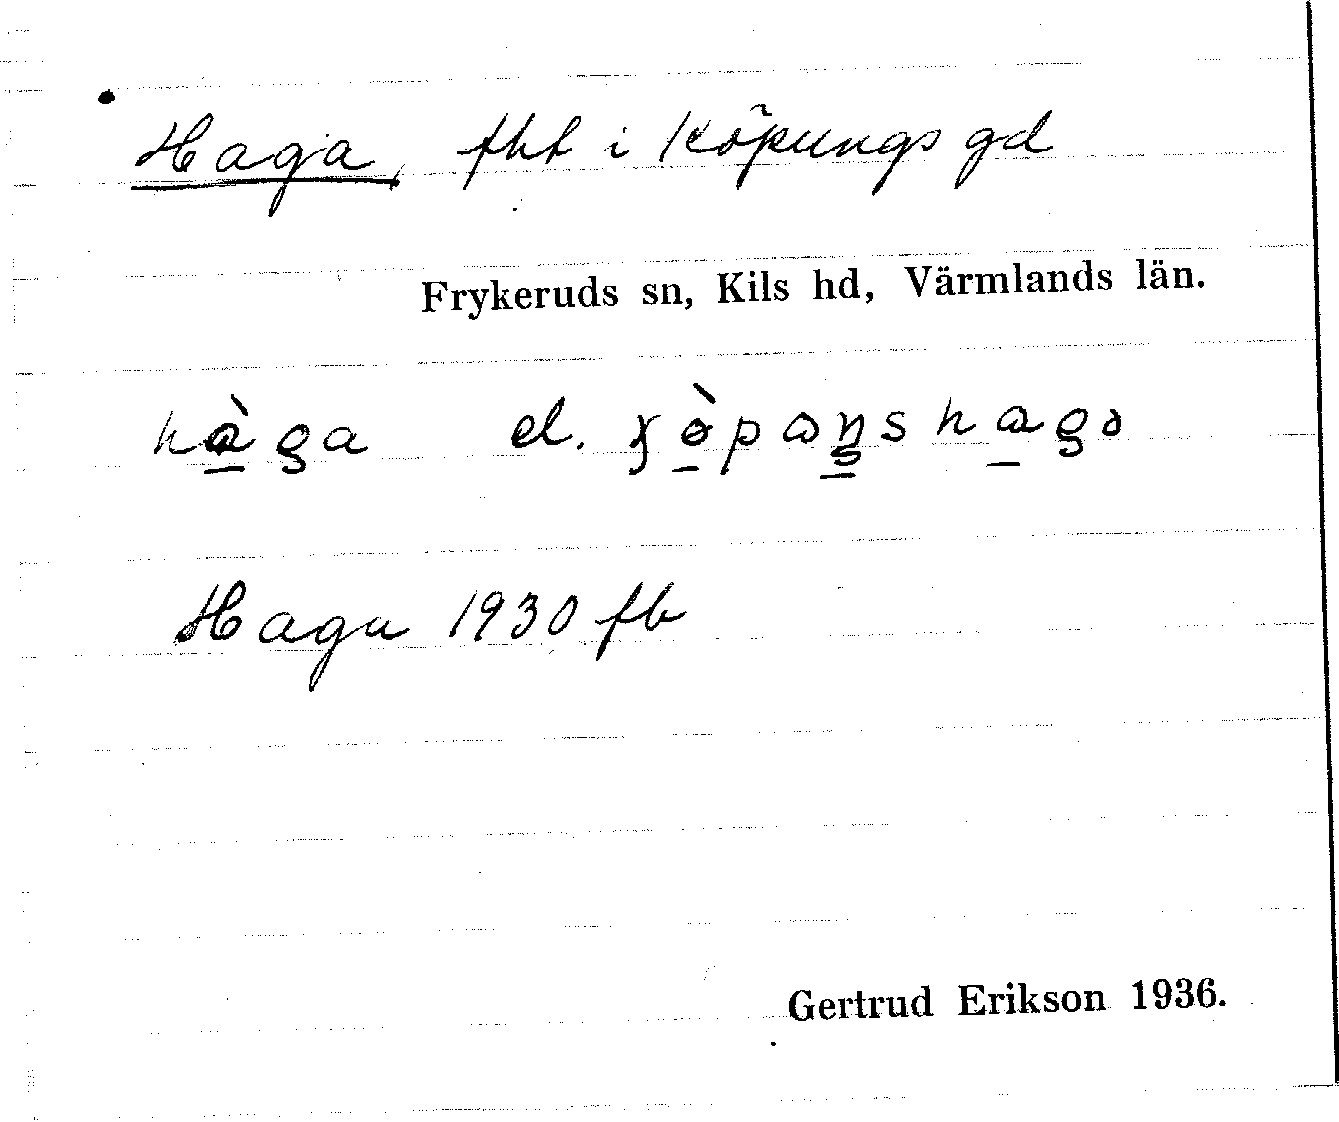 Haga, fht i Köpungs gd
Frykeruds sn, Kils hd, Värmlands län.
hàga el.
Haga 1930 fb
Gertrud Erikson 1936.